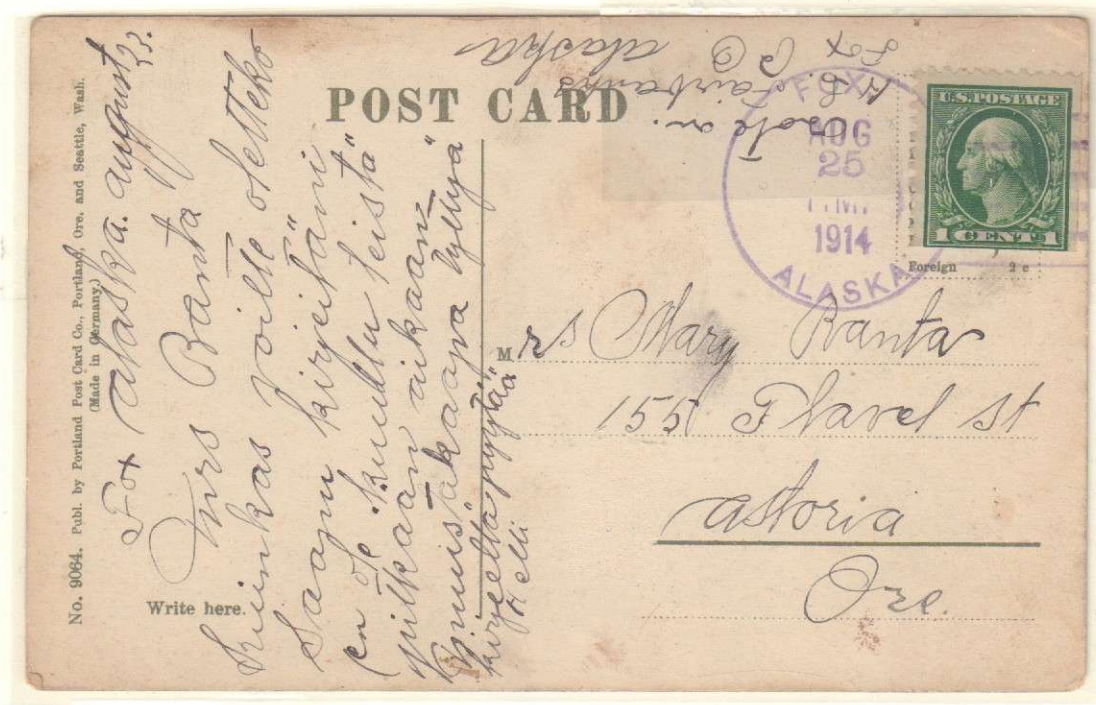 No. 9064. Publ. by Portland Post Card Co., Portland, Ore. and Seattle, Wash.
(Made in Germany.)
POST CARD
Write here.
Fox Alaska. august
23.
Mrs Banta
Kuinkas voitte oletteko
Saanu kirjeitäni
en ole kuullu teistä
pitkään aikaan
kirjeltä pyytää
Helli
H. E. Fairbanks
Fox
P O
alaska
FOX
AUG
25
P.M.
1914
ALASKA
U.S. POSTAGE
1 CENT 1
Foreign 2 c
Mrs Mary Banta
155 Flavel St
Astoria
Ore.